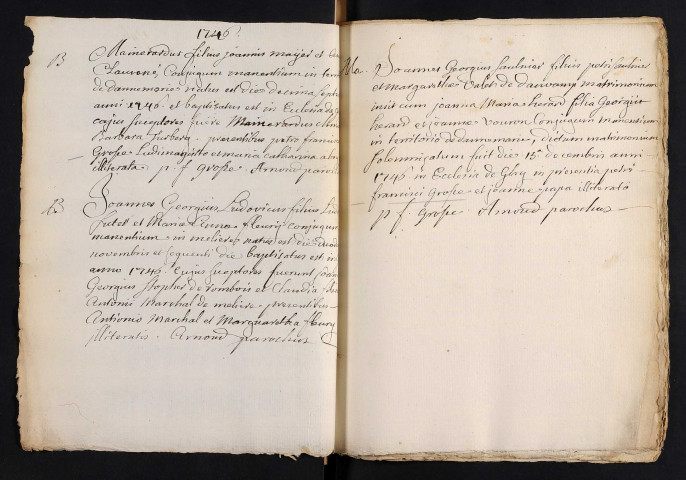 1746
B Mainerardus filius joannis maijer et
Laurent Conjugum manentium in
de dannemarie natus est die decima
anni 1746 et baptisatus est in Ecclesia de
cujus suceptores fuere Mainerardus
Barbara presentibus petro francisco
Grosse Ludimagistro et maria catharina
illiterata p f Grosse Arnoud parochus
B Joannes Georgius Ludovicus filius
futel et Marie Anne fleury conjugum
manentium in meliere natus est die
novembris et sequenti die baptisatus est in
anno 1746 Cujus suceptores fuerunt
Georgius stopher de et Claudia
Antonii Marchal de meliere presentibus
Antonio Marchal et Margaretha fleury
illiteratis Arnoud parochus
Ma. Joannes Georgius Saulnier filius petri Saulnier
et margarethe Valet de matrimonium
iniit cum joanna Maria herard filia Georgii
herard et joanne vouron Conjugum manentium
in territorio de dannemarie, dictum matrimonium
solemnizatum fuit die 15a decembris anni
1746 in Ecclesia de Glay in presentia petri
francisci Grosse et joanne papa illiterato
p f Grosse Arnoud parochus